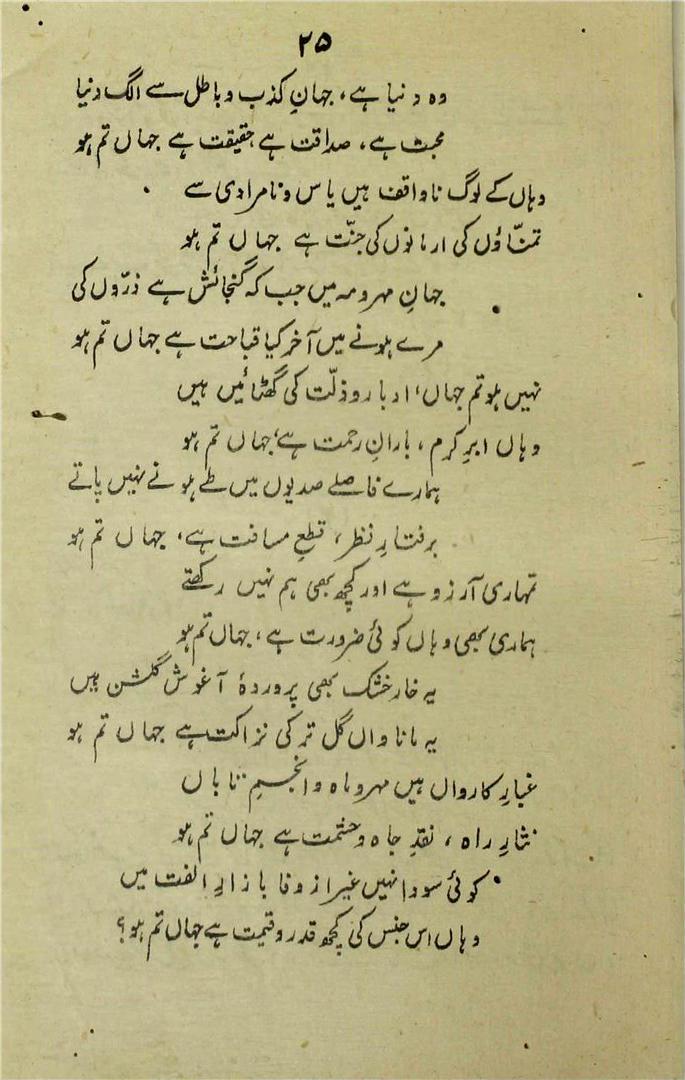 ۲۵
وہ دنیا ہے، جہانِ کذب و باطل سے الگ دنیا
محبت ہے، صداقت ہے حقیقت ہے جہاں تم ہو
وہاں کے لوگ ناواقف ہیں یاس و نامرادی سے
تمنّاؤں کی ارمانوں کی جنّت ہے جہاں تم ہو
جہانِ مہر و مہ میں جب کہ گنجائش ہے ذرّوں کی
مرے ہونے میں آخر کیا قباحت ہے جہاں تم ہو
نہیں ہو تم جہاں، ادبار و ذلّت کی گھٹائیں ہیں
وہاں ابرِ کرم، بارانِ رحمت ہے، جہاں تم ہو
ہمارے فاصلے صدیوں میں طے ہونے نہیں پاتے
برفتارِ نظر، قطعِ مسافت ہے، جہاں تم ہو
تمہاری آرزو ہے اور کچھ بھی ہم نہیں رکھتے
ہماری بھی وہاں کوئی ضرورت ہے، جہاں تم ہو
یہ خار خشک بھی پروردۂ آغوش گلشن ہیں
یہ مانا واں گل تر کی نزاکت ہے جہاں تم ہو
غبارِ کارواں ہیں مہر و ماہ و انجمِ تاباں
نثارِ راہ، نقدِ جاہ و حشمت ہے جہاں تم ہو
کوئی سودا نہیں غیر از وفا بازارِ الفت میں
وہاں اس جنس کی کچھ قدر و قیمت ہے جہاں تم ہو؟